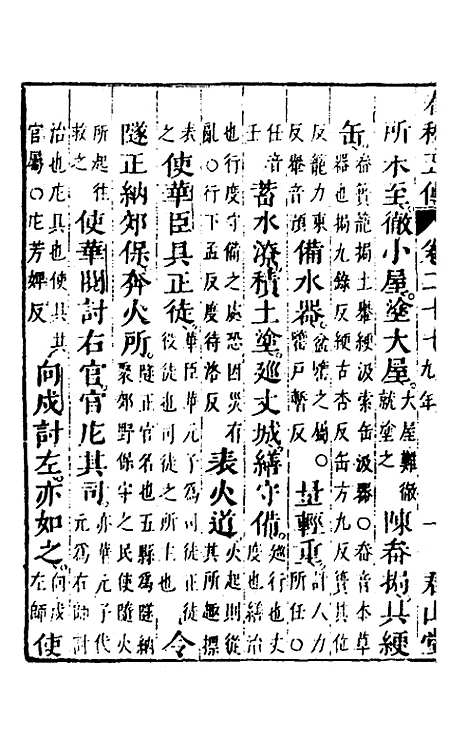 春秋五傳 卷二十七 九年 一 君山堂
所未至徹小屋塗大屋大屋難徹就塗之陳畚挶具綆
缶畚簣籠挶土轝綆汲索缶汲器○畚音本草器也挶九錄反綆古杏反缶方九反簣其位
反籠力東反轝音預備水器盆㽉之屬○㽉戶暫反量輕重計人力所任○
任音壬蓄水潦積土塗廵丈城繕守備廵行也丈度也繕治
也行度守備之處恐因災有亂○行下孟反度待洛反表火道火起則從其所趣摽
表之使華臣具正徒華臣華元子為司徒正徒役徒也司徒之所主也令
隧正納郊保奔火所隧正官名也五縣為隧納聚郊野保守之民使隨火
所起往救之使華閱討右官官庀其司亦華元子代元為右師討
治也庀具也使具其官屬○庀芳婢反向戌討左亦如之向戌左師使